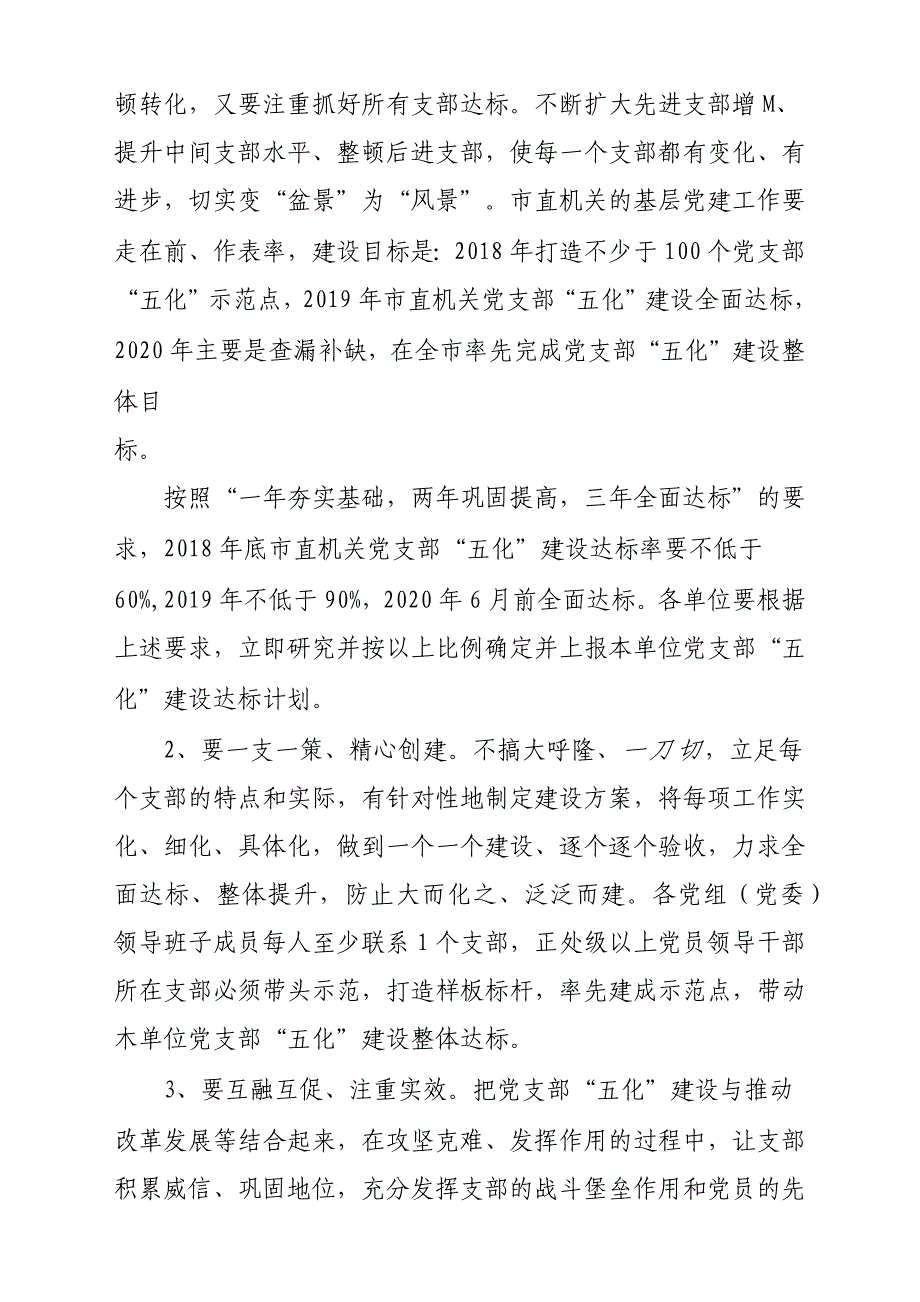 顿转化，又要注重抓好所有支部达标。不断扩大先进支部增 M、
提升中间支部水平、整顿后进支部，使每一个支部都有变化、有
进步，切实变“盆景”为“风景”。市直机关的基层党建工作要
走在前、作表率，建设目标是：2018 年打造不少于 100 个党支部
“五化”示范点，2019 年市直机关党支部“五化”建设全面达标，
2020 年主要是查漏补缺，在全市率先完成党支部“五化”建设整
体目
标。
按照“一年夯实基础，两年巩固提高，三年全面达标”的要
求，2018 年底市直机关党支部“五化”建设达标率要不低于
60%,2019 年不低于 90%，2020 年 6 月前全面达标。各单位要根据
上述要求，立即研究并按以上比例确定并上报本单位党支部“五
化”建设达标计划。
2、要一支一策、精心创建。不搞大呼隆、一刀切，立足每
个支部的特点和实际，有针对性地制定建设方案，将每项工作实
化、细化、具体化，做到一个一个建设、逐个逐个验收，力求全
面达标、整体提升，防止大而化之、泛泛而建。各党组（党委）
领导班子成员每人至少联系 1 个支部，正处级以上党员领导干部
所在支部必须带头示范，打造样板标杆，率先建成示范点，带动
木单位党支部“五化”建设整体达标。
3、要互融互促、注重实效。把党支部“五化”建设与推动
改革发展等结合起来，在攻坚克难、发挥作用的过程中，让支部
积累威信、巩固地位，充分发挥支部的战斗堡垒作用和党员的先